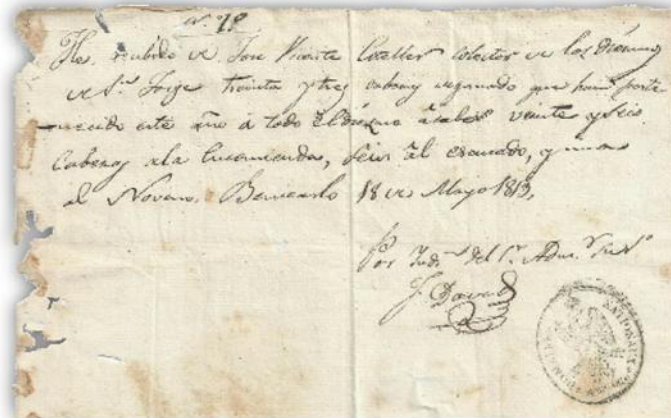 He recibido de Jose Vicente Cuellar colector de los diesmos
de Sn. Jorge treinta y tres cabezas de ganado que han perte
necido este año á todo el diesmo á saber veinte y seis
Cabezas a la Encomienda, seis al escusado, y una
al Noveno. Benicarlo 18 de Mayo 1813.
Por Indn. del Sr. Admr.
F. David
NATIONAUX